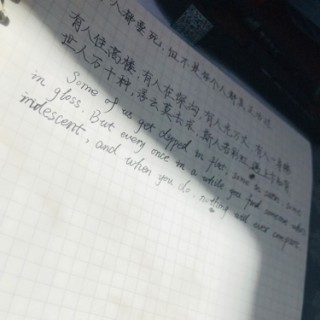 人都要死，但不是每个人都真正
有人住高楼，有人在深沟，有人光万丈，有人一身锈
世人万千种，浮云莫去求，斯人若彩虹，遇上方知有
Some of us get dipped in flat, some in satin, some
in gloss. But every once in a while you find someone who's
iridescent, and when you do, nothing will ever compare.